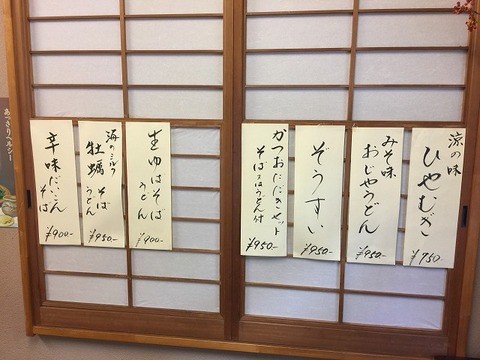 涼の味
ひやむぎ
¥750-
みそ味
おじやうどん
¥950-
ぞうすい
¥950-
かつおたたきセット
そば又はうどん付
¥950-
生ゆばそば
うどん
¥900-
海のミルク
牡蠣そば
うどん
¥950-
辛味だいこん
そば
¥900-
あっさりヘルシー